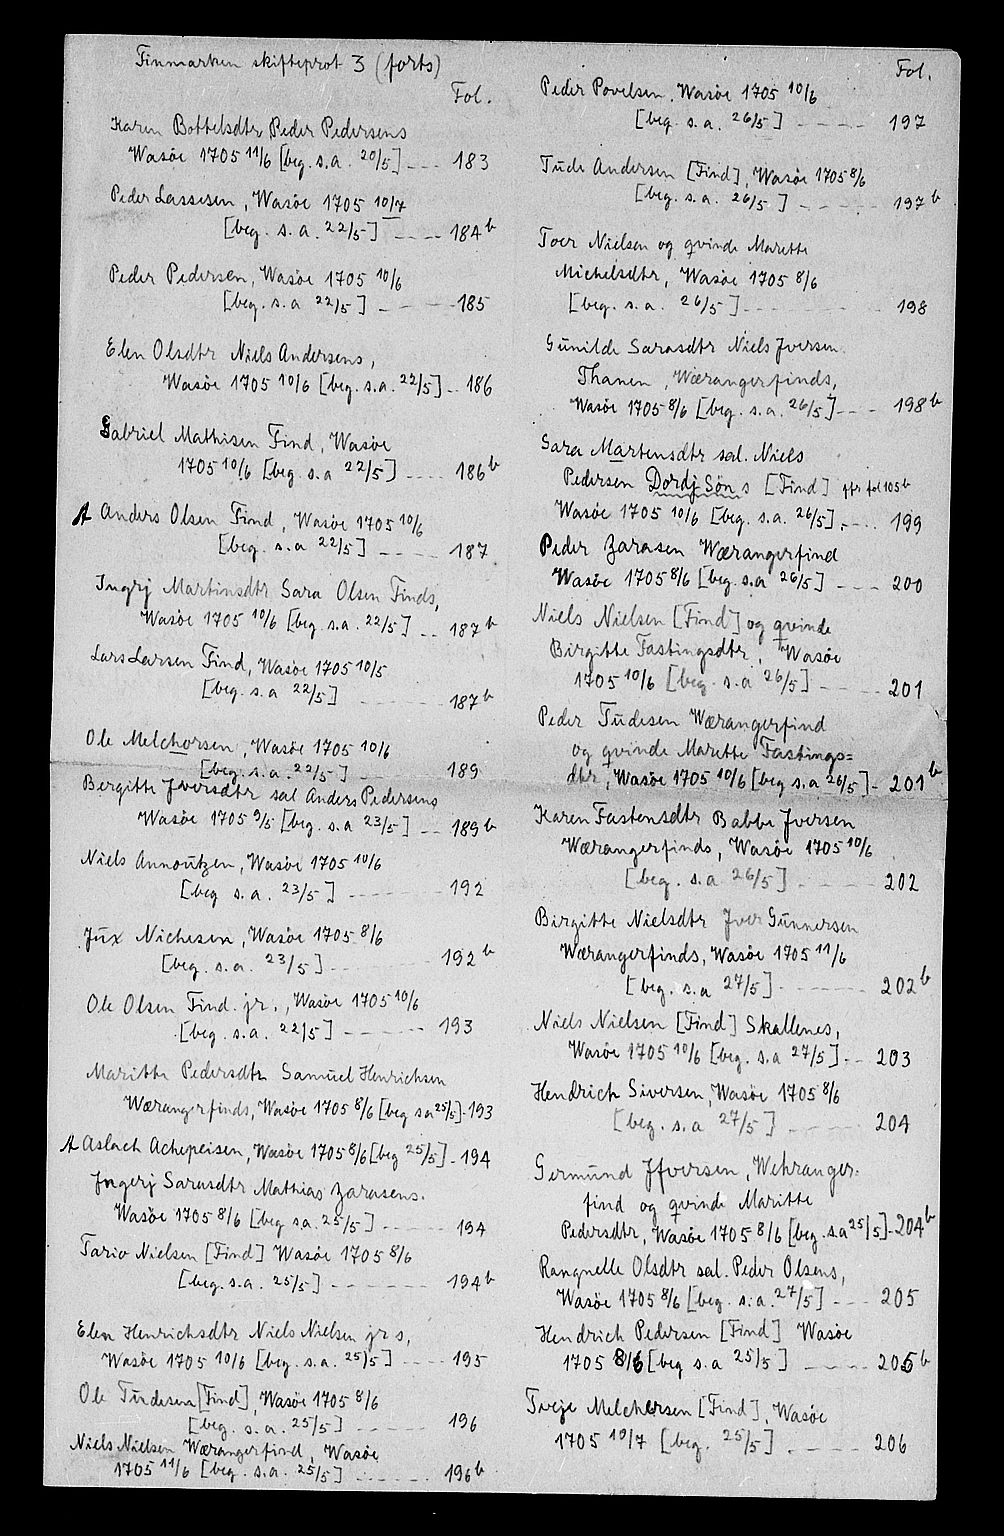 Finmarken skifteprot 3 (forts)
Fol.
Karen Bottelsdtr Peder Pedersens
Wasöe 1705 11/6 [beg. s.a. 20/5] --- 183
Peder Lassesen, Wasöe 1705 10/7
[beg. s. a. 22/5] ---- 184b
Peder Pedersen, Wasöe 1705 10/6
[beg. s. a 22/5] ---- 185
Elen Olsdtr Niels Andersens,
Wasöe 1705 10/6 [beg. s.a. 22/5] -- 186
Gabriel Mathisen Find, Wasöe
1705 10/6 [beg. s.a 22/5] ---- 186b
A Anders Olsen Find, Wasöe 1705 10/6
[beg. s.a 22/5] ---- 187
Ingrj Martinsdtr Sara Olsen Finds,
Wasöe 1705 10/6 [beg. s.a. 22/5] -- 187b
Lars Larsen Find, Wasöe 1705 10/5
[beg. s.a 22/5] ------ 187b
Ole Melchorsen, Wasöe 1705 10/6
[beg. s. a. 22/5] ------ 189
Birgitte Jversdtr sal Anders Pedersens
Wasöe 1705 9/5 [beg. s.a 23/5] -- 189b
Niels Annoützen, Wasöe 1705 10/6
[beg s. a. 23/5] ------ 192
Jüx Nichesen, Wasöe 1705 8/6
[beg. s.a. 23/5] ------ 192b
Ole Olsen Find. jr., Wasöe 1705 10/6
[beg. s.a. 22/5] ------ 193
Maritte Pedersdtr Samüel Henrichsen
Wærangerfinds, Wasöe 1705 8/6 [beg s a 25/5] - 193
A Aslach Achepeisen, Wasöe 1705 8/6 [beg 25/5] - 194
Jngerj Sarasdtr Mathias Zarasens.
Wasöe 1705 8/6 [beg s a. 25/5] ---- 194
Tario Nielsen [Find] Wasöe 1705 8/6
[beg. s.a. 25/5] ------ 194b
Elen Henrichsdtr Niels Nielsen jr s,
Wasöe 1705 10/6 [beg. s.a. 25/5] ---- 195
Ole Tüdesen [Find], Wasöe 1705 8/6
[beg. s.a. 25/5] ------ 196
Niels Nielsen Wærangerfind, Wasöe
1705 11/6 [beg. s.a. 25/5] ------ 196b
Fol.
Peder Povelsen, Wasöe 1705 10/6
[beg. s.a. 26/5] ---- 197
Tüde Andersen [Find], Wasöe 1705 8/6
[beg. s.a. 26/5] ---- 197b
Toer Nielsen og qvinde Marette
Michelsdtr, Wasöe 1705 8/6
[beg. s.a. 26/5] ------ 198
Günilde Sarasdtr Niels Jversen
Thanen, Wærangerfinds,
Wasöe 1705 8/6 [beg. s.a. 26/5] --- 198b
Sara Martensdtr sal. Niels
Pedersen Dordj Søn s [Find] jfr fol 105b
Wasöe 1705 10/6 [beg. s.a. 26/5] ---- 199
Peder Zarasen Wærangerfind
Wasöe 1705 8/6 [beg. s.a 26/5] --- 200
Niels Nielsen [Find] og qvinde
Birgitte Fastingsdtr, Wasöe
1705 10/6 [beg. s.a 26/5] ---- 201
Peder Tüdesen Wærangerfind
og qvinde Marette Fastings=
dtr, Wasöe 1705 10/6 [beg s.a 26/5] - 201b
Karen Fastensdtr Babbe Jversen
Wærangerfinds, Wasöe 1705 10/6
[beg. s.a 26/5] ---- 202
Birgitte Nielsdtr Jver Günnersen
Wærangerfinds, Wasöe 1705 11/6
[beg. s.a 27/5] ------ 202b
Niels Nielsen [Find] Skallenes,
Wasöe 1705 10/6 [beg. s.a 27/5] -- 203
Hendrich Siversen, Wasöe 1705 8/6
[beg. s.a 27/5] ---- 204
Germünd Jfversen, Wehranger-
find og qvinde Maritte
Pedersdtr, Wasöe 1705 8/6 [beg. s.a 25/5] - 204b
Rangnelle Olsdtr sal. Peder Olsens,
Wasöe 1705 8/6 [beg. s.a. 27/5] --- 205
Hendrich Pedersen [Find] Wasöe
1705 8/6 [beg s.a 25/5] ---- 205b
Tveje Melchersen [Find], Wasöe
1705 10/7 [beg. 25/5] ---- 206